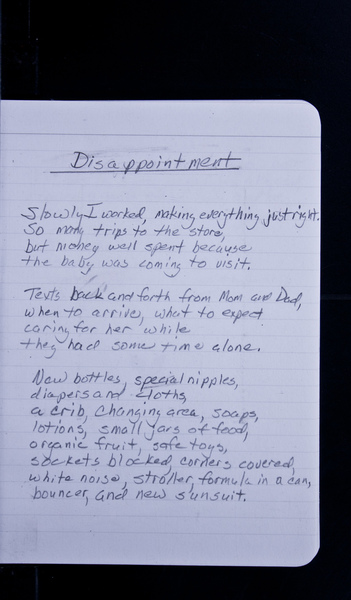 Disappointment
Slowly I worked, making everything just right.
So many trips to the store,
but money well spent because
the baby was coming to visit.
Texts back and forth from Mom and Dad,
when to arrive, what to expect
caring for her while
they had some time alone.
New bottles, special nipples,
diapers and cloths,
a crib, changing area, soaps,
lotions, small jars of food,
organic fruit, safe toys,
sockets blocked, corners covered,
white noise, stroller, formula in a can,
bouncer, and new sunsuit.